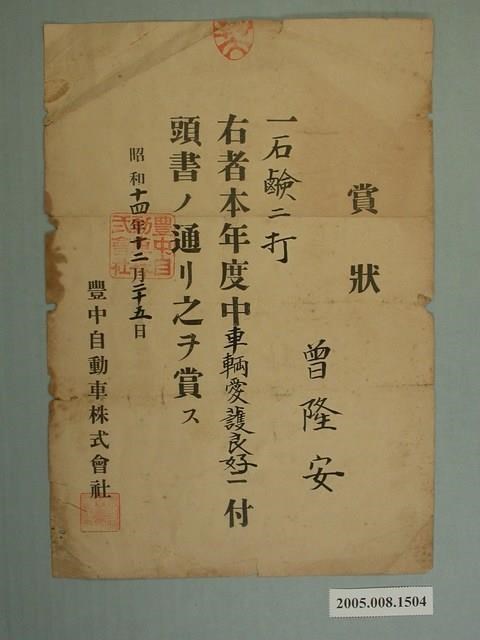 賞狀
曾隆安
一石鹼二打
右者本年度中車輌愛護良好ニ付
頭書ノ通リ之ヲ賞ス
昭和十四年十二月二十五日
豐中自動車株式會社
豐中自
動車株
式會社
2005.008.1504